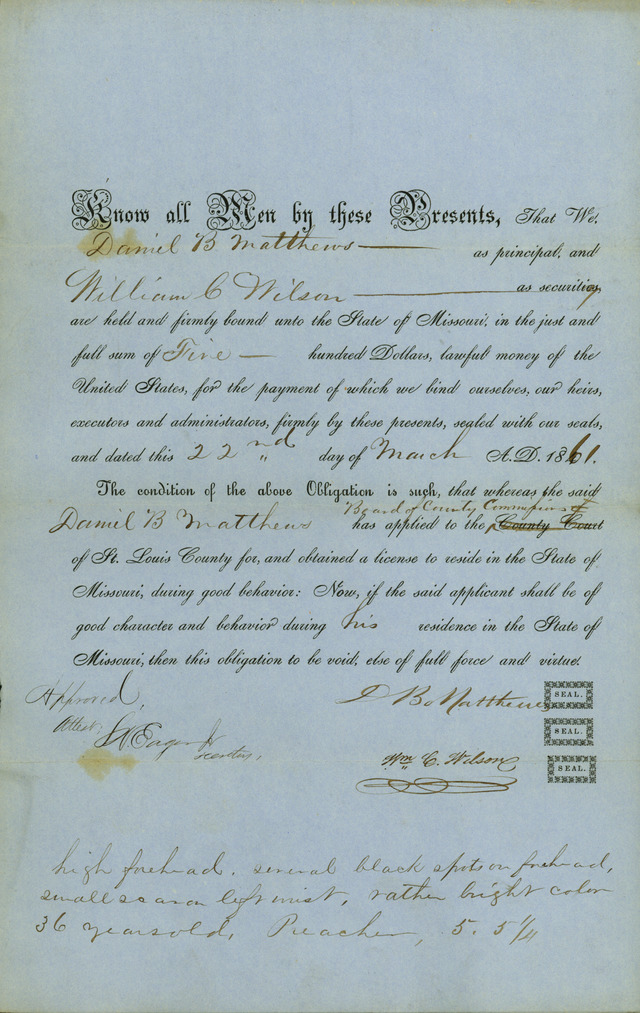 Know all Men by these Presents, That We,
Daniel B Matthews as principal, and
William C Wilson as security
are held and firmly bound unto the State of Missouri, in the just and
full sum of Five hundred Dollars, lawful money of the
United States, for the payment of which we bind ourselves, our heirs,
executors and administrators, firmly by these presents, sealed with our seals,
and dated this 22nd day of March A.D. 1861.
The condition of the above Obligation is such, that whereas the said
Board of County Commissins of
Daniel B Matthews has applied to the County Court
of St. Louis County for, and obtained a license to reside in the State of
Missouri, during good behavior: Now, if the said applicant shall be of
good character and behavior during his residence in the State of
Missouri, then this obligation to be void, else of full force and virtue.
Approved, D B Matthews SEAL.
Attest, SEAL.
Wm C. Wilson SEAL.
high forehead. several black spots on forehead,
small scar on left wrist, rather bright color
36 years old, Preacher, 5. 5 1/4